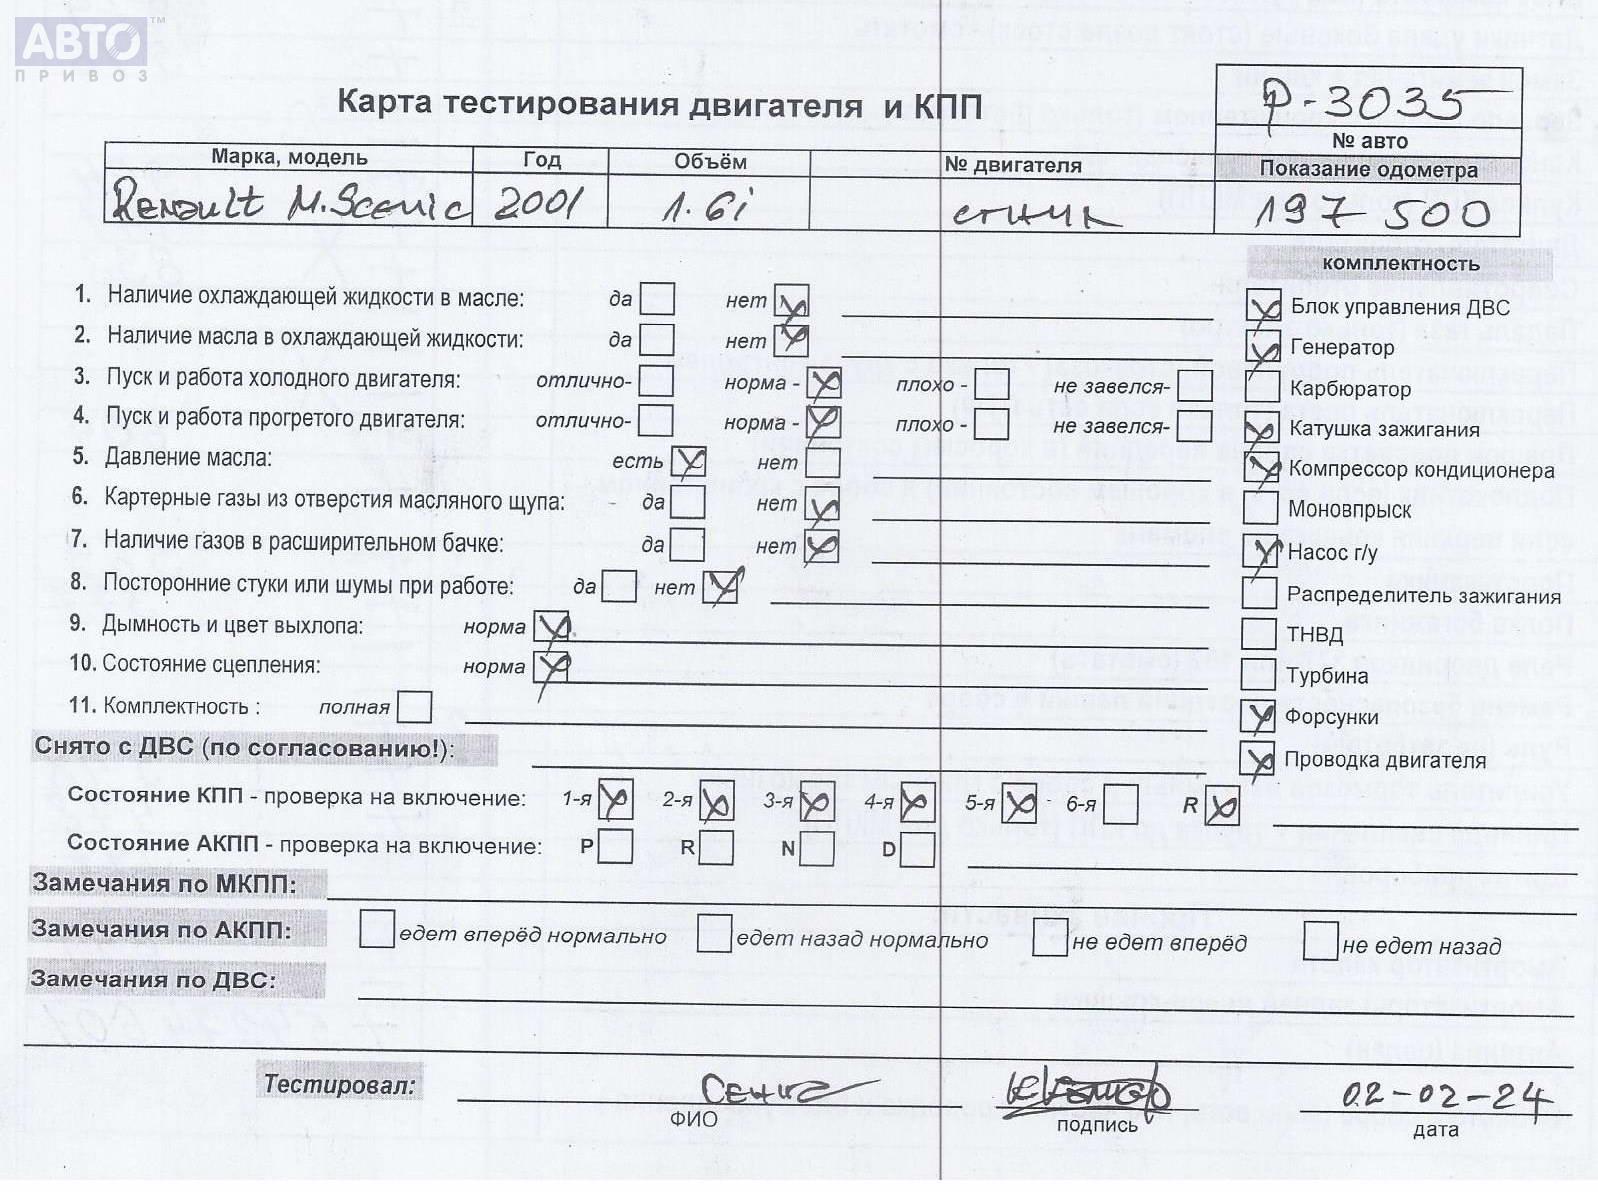 АВТО™
ПРИВОЗ
Карта тестирования двигателя и КПП
P-3035
№ авто
Марка, модель Год Объём № двигателя Показание одометра
Renault M.Scenic 2001 1.6i 197 500
комплектность
1. Наличие охлаждающей жидкости в масле: да нет
Блок управления ДВС
2. Наличие масла в охлаждающей жидкости: да нет
Генератор
3. Пуск и работа холодного двигателя: отлично- норма - плохо - не завелся-
Карбюратор
4. Пуск и работа прогретого двигателя: отлично- норма - плохо - не завелся-
Катушка зажигания
5. Давление масла: есть нет
Компрессор кондиционера
6. Картерные газы из отверстия масляного щупа: да нет
Моновпрыск
7. Наличие газов в расширительном бачке: да нет
Насос г/у
8. Посторонние стуки или шумы при работе: да нет
Распределитель зажигания
9. Дымность и цвет выхлопа: норма
ТНВД
10. Состояние сцепления: норма
Турбина
11. Комплектность : полная
Форсунки
Снято с ДВС (по согласованию!):
Проводка двигателя
Состояние КПП - проверка на включение: 1-я 2-я 3-я 4-я 5-я 6-я R
Состояние АКПП - проверка на включение: P R N D
Замечания по МКПП:
Замечания по АКПП: едет вперёд нормально едет назад нормально не едет вперёд не едет назад
Замечания по ДВС:
Тестировал: 02-02-24
ФИО подпись дата